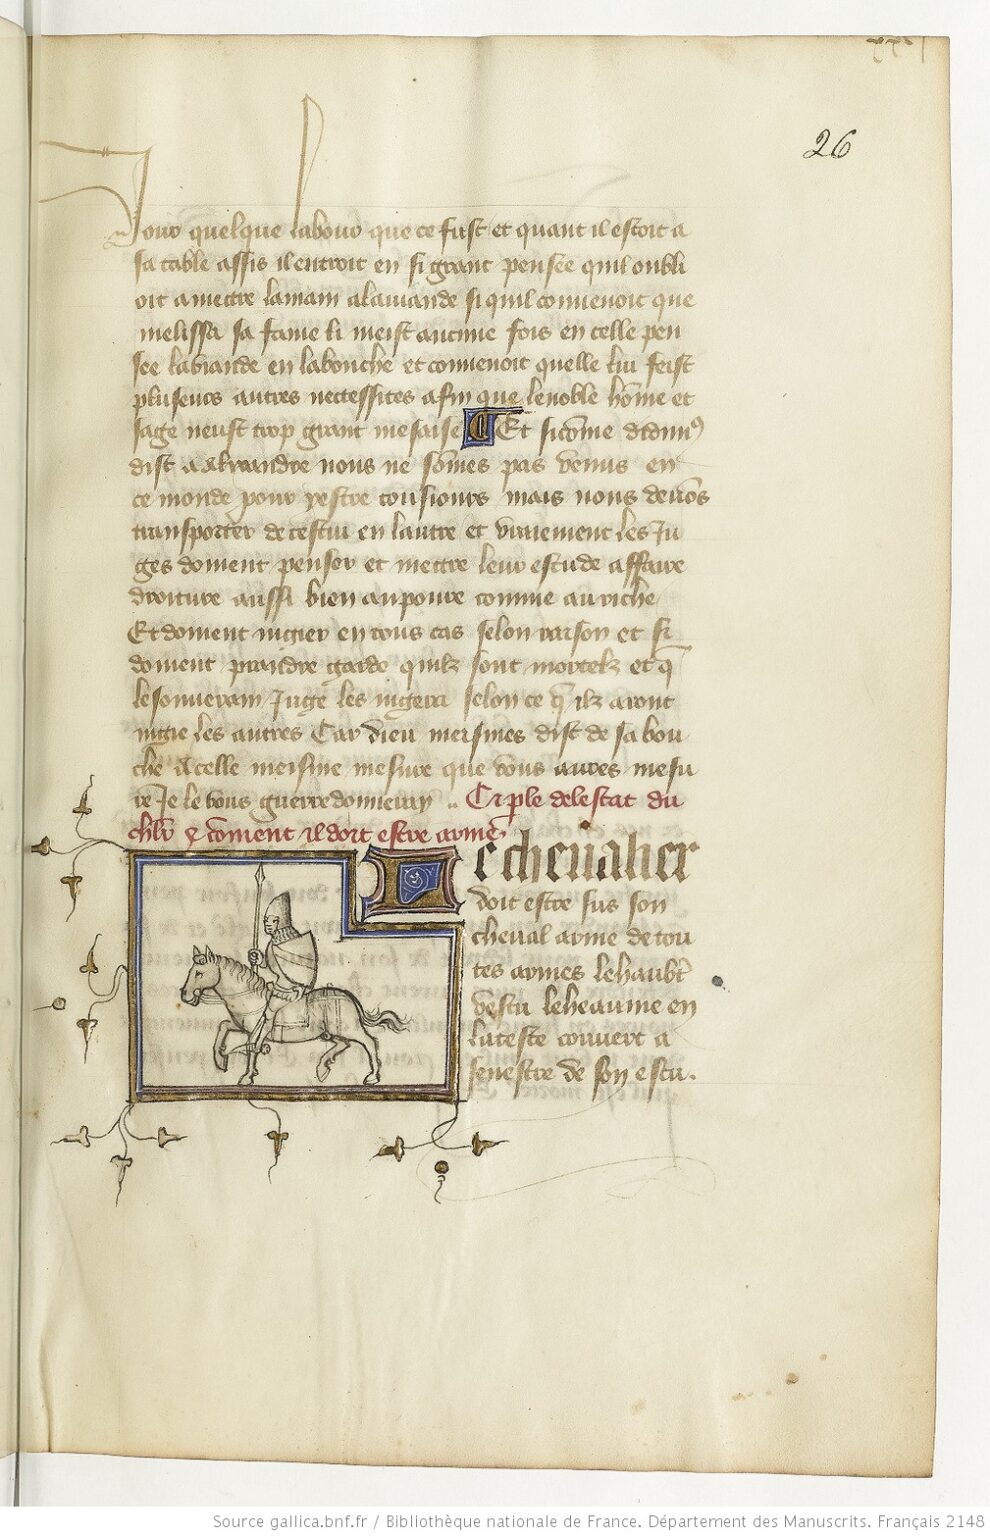 xxvi
26
Jour quelque labour que ce fust et quant il estoit a
sa table assis il entroit en si grant pensee quil oubli
oit a mettre la main a la viande si quil convenoit que
melissa sa fame li meist aucune fois en celle pen
see la viande en la bouche et convenoit quelle lui feist
pluseurs autres necessites afin que le noble hōme et
sage neust trop grant mesaise Et sicōme
dist a alixandre nous ne sōmes pas venus en
ce monde pour y estre tousiours mais nous devōs
transporter de cestui en lautre et vraiement les Ju
ges doivent penser et mettre leur estude a ffaire
droiture aussi bien au povre comme au riche
Et doivent iugier en tous cas selon raison et si
doivent prandre garde quilz sont mortelz et q̄
le souverain Juge les iugera selon ce q̄ ilz avont
iugie les autres Car dieu meismes dist de sa bou
che A celle meisme mesure que vous autres mesu
re Je le vous guerredonneray .. Cy ple de lestat du
chlr & cōment il doit estre arme
Le chevalier
doit estre sus son
cheval arme de tou
tes armes le haub't
vestu le heaume en
la teste couvert a
senestre de son escu.
Source gallica.bnf.fr / Bibliothèque nationale de France. Département des Manuscrits. Français 2148